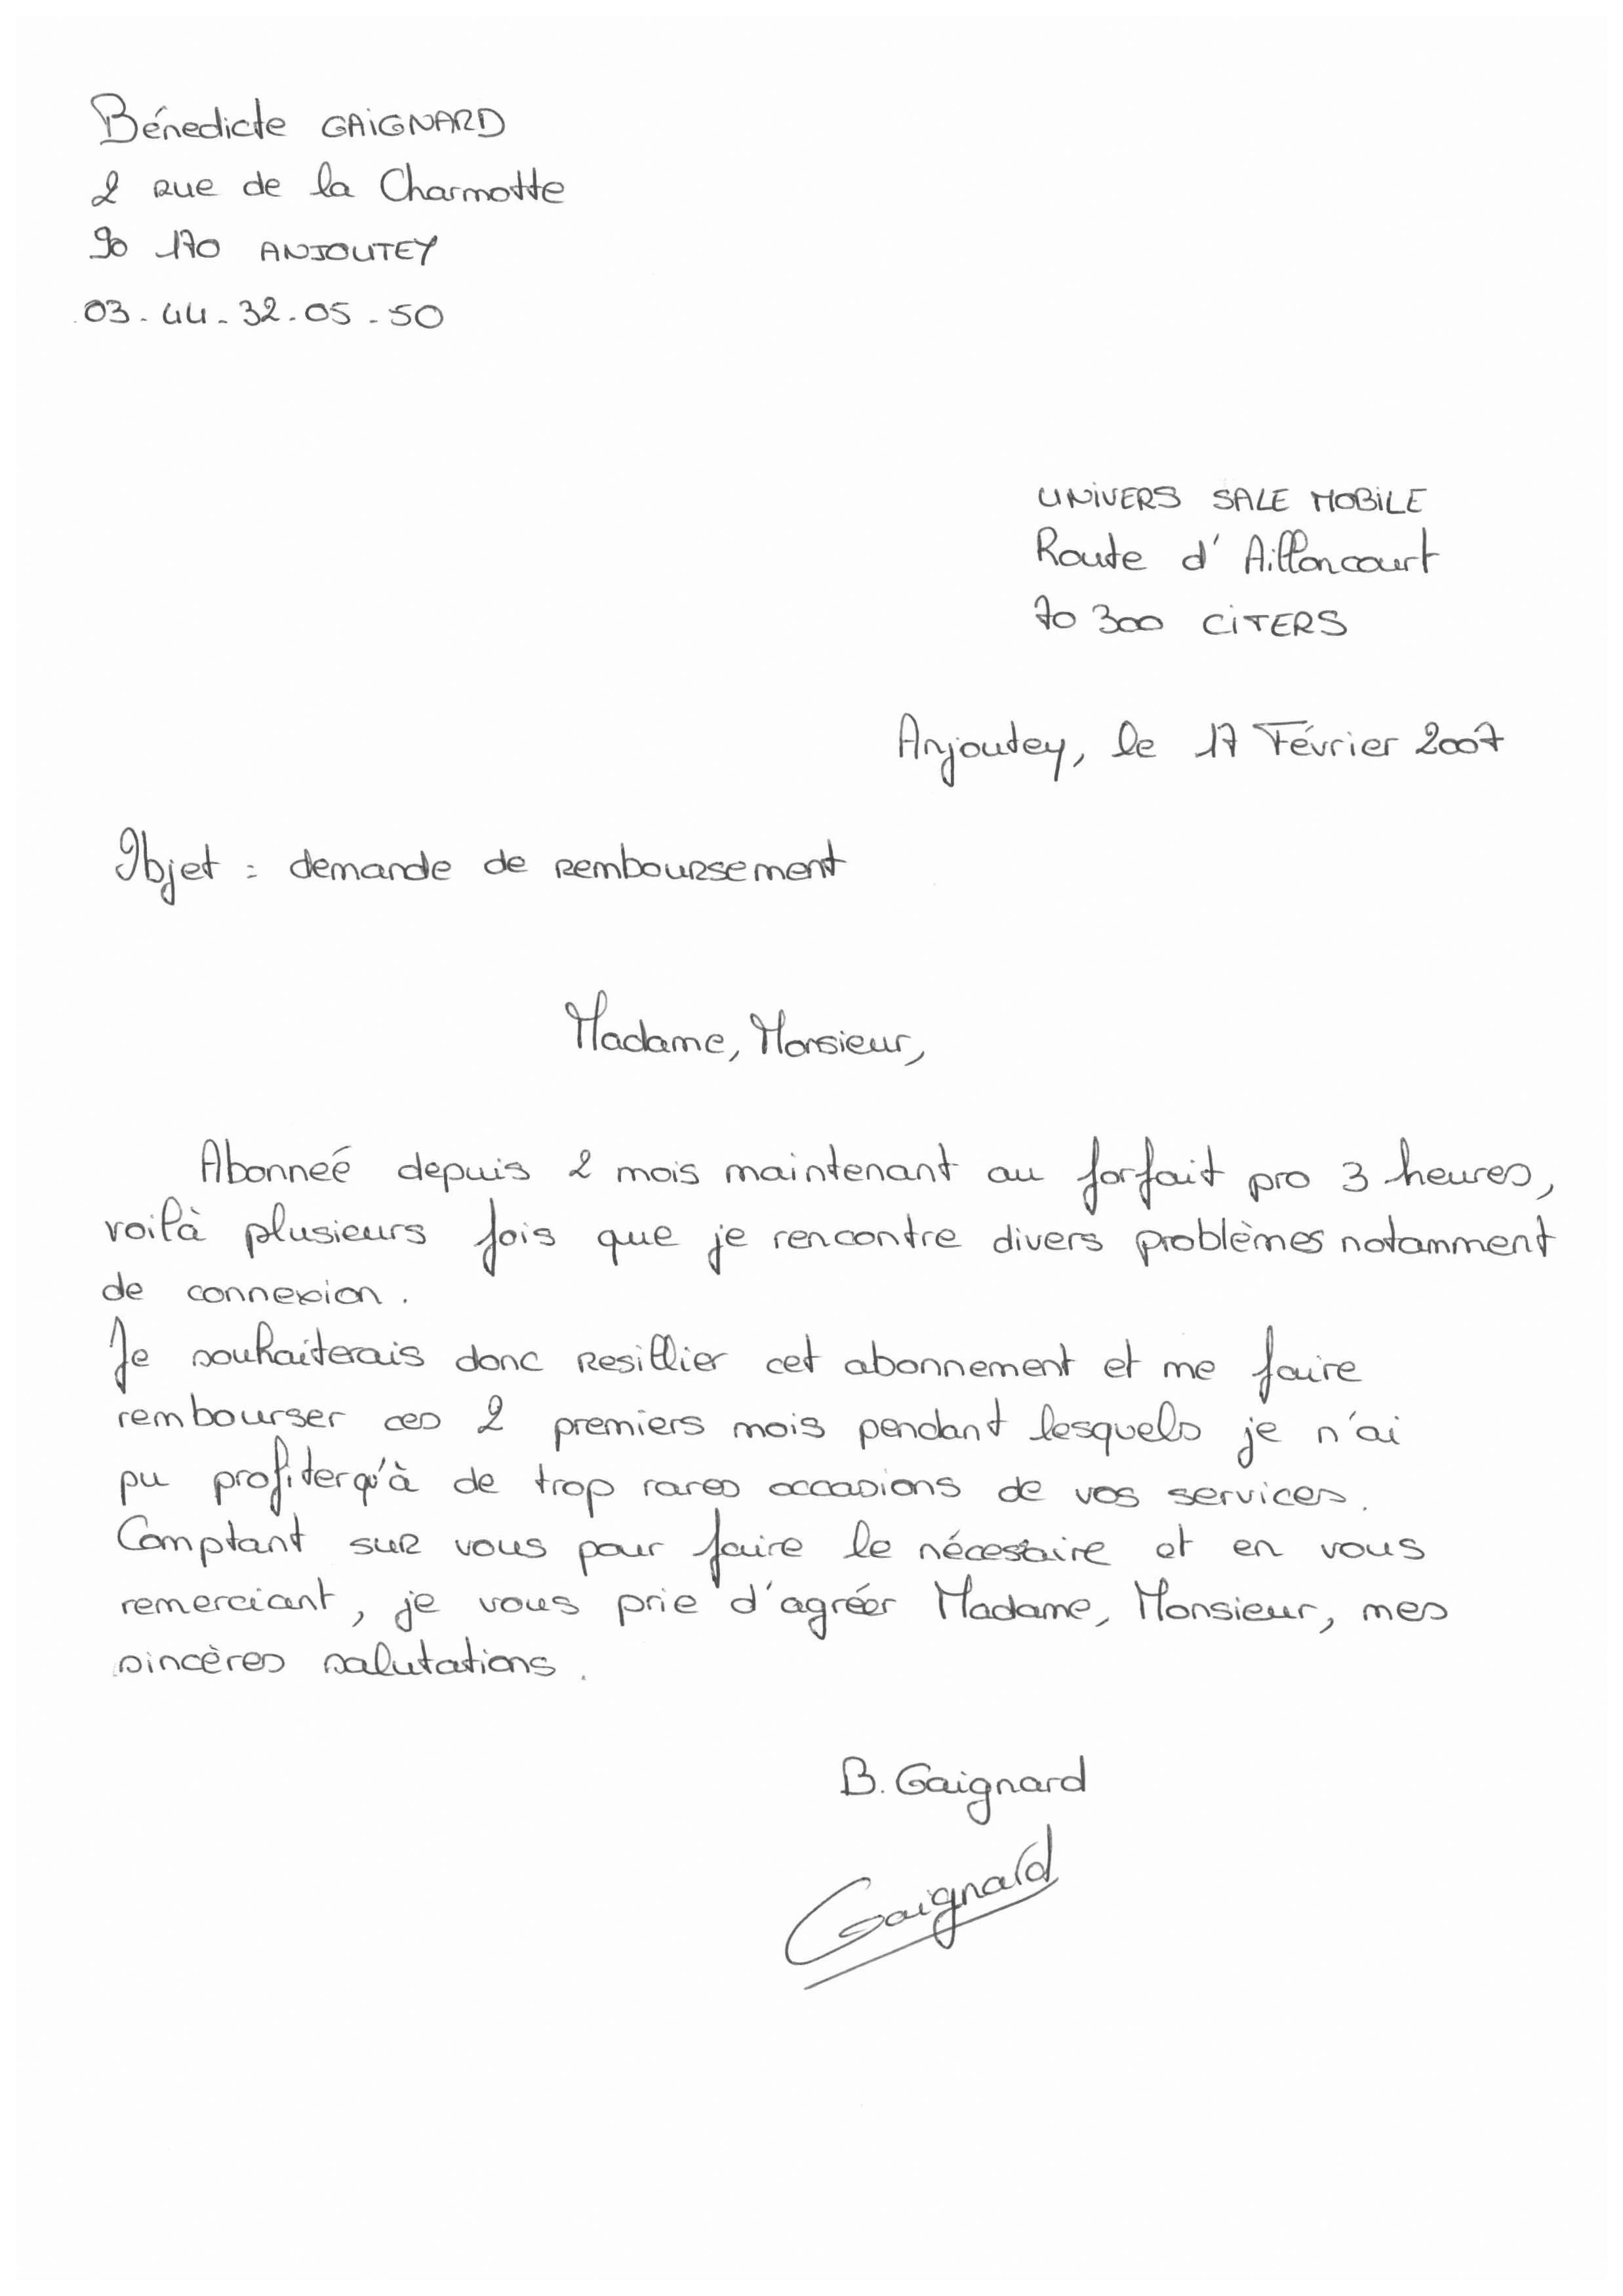 Bénedicte GAIGNARD
2 rue de la Charmotte
90 170 ANJOUTEY
03.44.32.05.50
UNIVERS SALE MOBILE
Route d'Ailloncourt
70 300 CITERS
Anjoutey, le 17 Février 2007
Objet : demande de remboursement
Madame, Monsieur,
Abonneé depuis 2 mois maintenant au forfait pro 3 heures,
voilà plusieurs fois que je rencontre divers problèmes notamment
de connexion.
Je souhaiterais donc resillier cet abonnement et me faire
rembourser ces 2 premiers mois pendant lesquels je n'ai
pu profiter qu'à de trop rares occasions de vos services.
Comptant sur vous pour faire le nécessaire et en vous
remerciant, je vous prie d'agréer Madame, Monsieur, mes
sincères salutations.
B. Gaignard
Gaignard